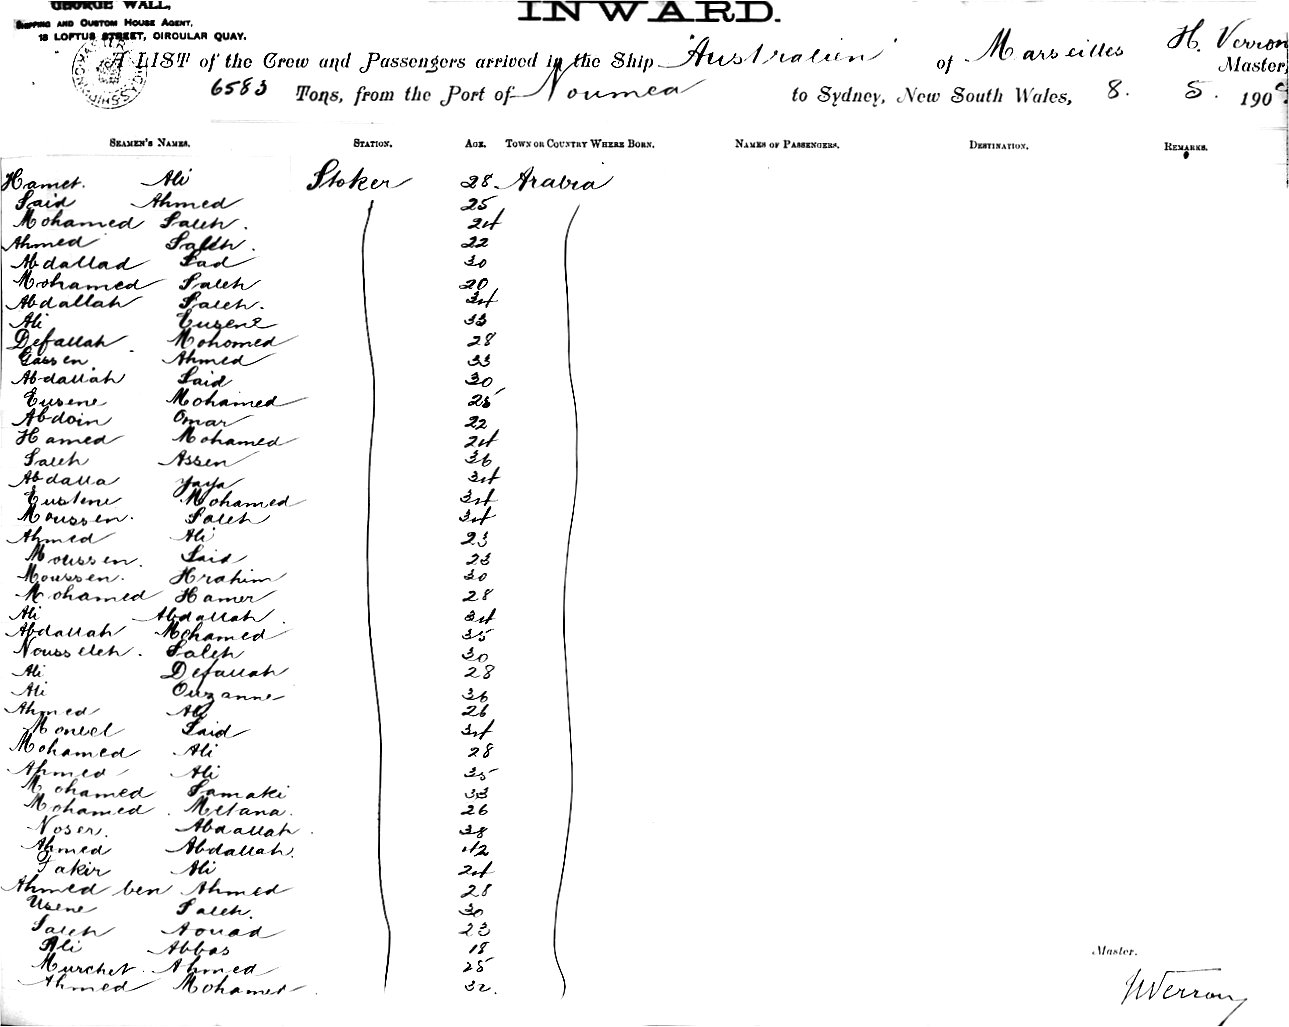 GEORGE WALL,
SHIPPING AND CUSTOM HOUSE AGENT,
18 LOFTUS STREET, CIRCULAR QUAY.
INWARD.
A LIST of the Crew and Passengers arrived in the Ship "Australien" of Marseilles H. Verron Master,
6583 Tons, from the Port of Noumea to Sydney, New South Wales, 8. 5. 190
SEAMEN'S NAMES. STATION. AGE. TOWN OR COUNTRY WHERE BORN. NAMES OF PASSENGERS. DESTINATION. REMARKS.
Hamet. Ali Stoker 28 Arabia
Said Ahmed 25
Mohamed Saleh. 24
Ahmed Saleh. 22
Abdallad Sad 30
Mohamed Saleh 20
Abdallah Saleh. 34
Ali Eusene 33
Defallah Mohomed 28
Gassen Ahmed 33
Abdallah Said 30
Eusene Mohamed 25
Abdoin Omar 22
Hamed Mohamed 24
Saleh Assen 36
Abdalla Yaya 34
Eustene Mohamed 34
Moussen. Saleh 34
Ahmed Ali 23
Moussen. Said 23
Moussen. Hrahim 30
Mohamed Hamer 28
Ali Abdallah. 34
Abdallah Mohamed 35
Nousseleh. Saleh 30
Ali Defallah 28
Ali Ouzanne 36
Ahmed Ali 26
Moneel Said 34
Mohamed Ali 28
Ahmed Ali 35
Mohamed Samaki 33
Mohamed. Metana. 26
Noser. Abdallah. 38
Ahmed Abdallah. 42
Takir Ali 24
Ahmed ben Ahmed 28
Usene Saleh. 30
Saleh Aouad 23
Ali Abbas 18
Murchet. Ahmed 25
Ahmed Mohamet. 32.
Master.
H Verron